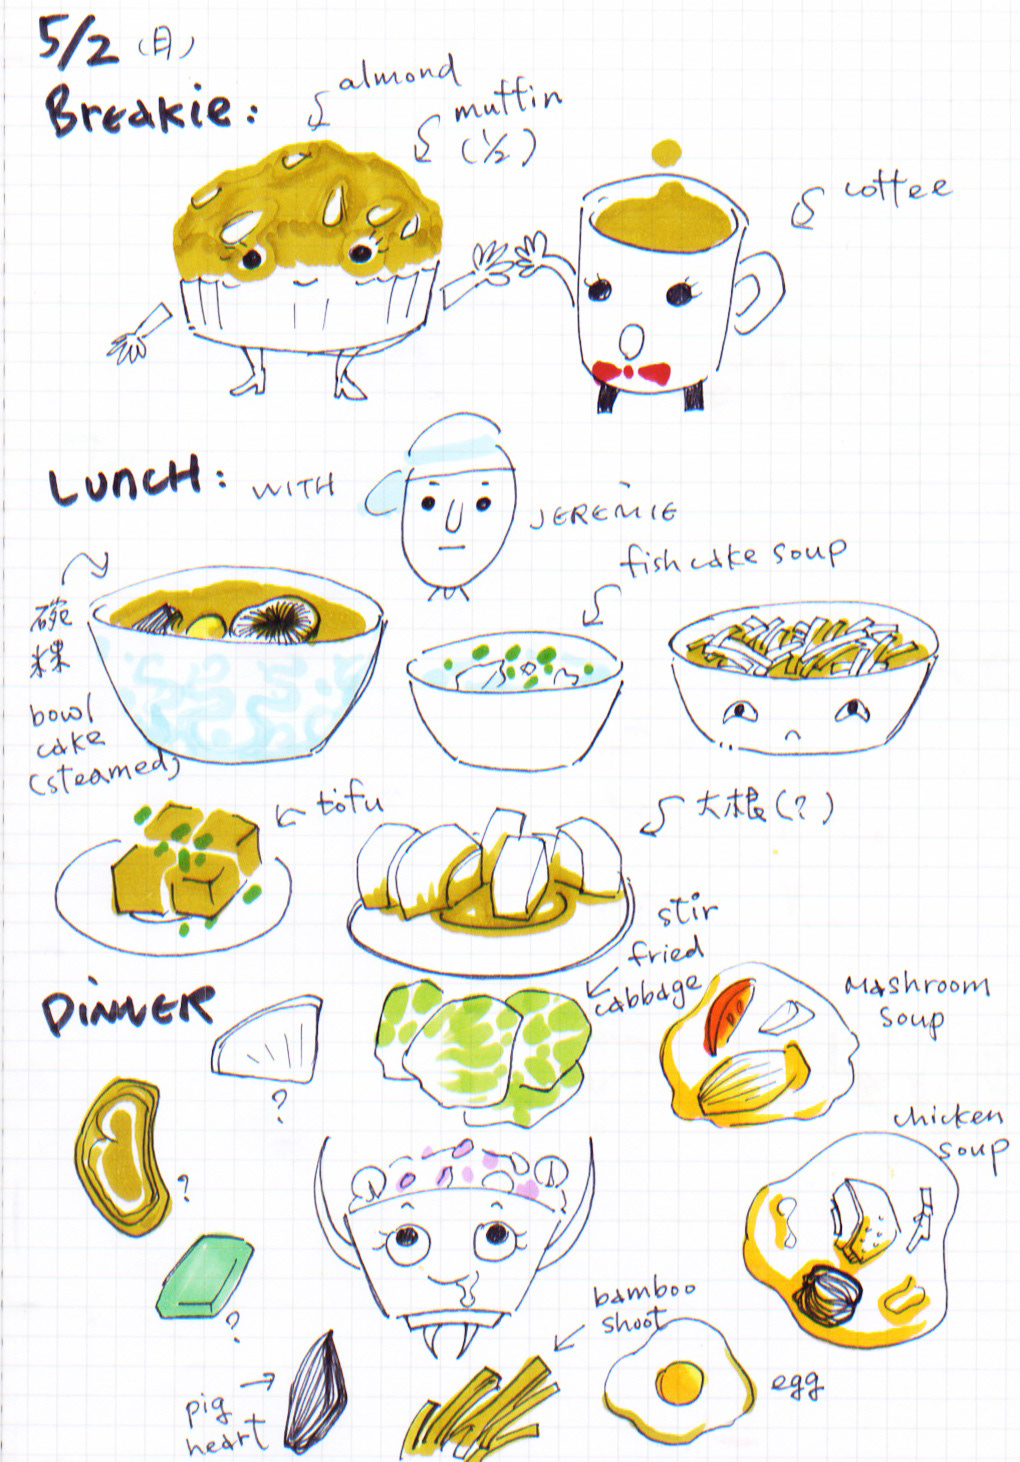 5/2 (日)
Breakie:
almond
muffin
(1/2)
coffee
LUNCH: WITH
JEREMIE
fish cake soup
碗
粿
bowl
cake
(steamed)
tofu
大根(?)
DINNER
stir
fried
cabbage
Mashroom
soup
?
?
?
chicken
soup
bamboo
shoot
egg
pig
heart